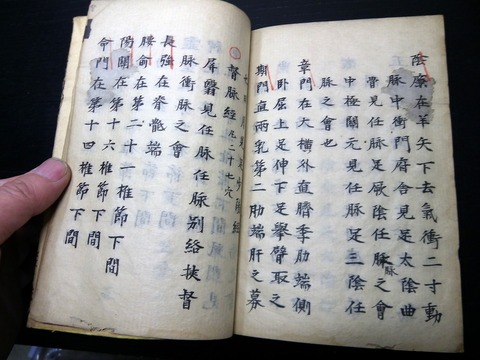 陰廉在羊矢下去氣衝二寸動
脉中衝門府合見足太陰曲
骨見任脉足厥陰任脉之會
中極關元見任脉足三陰任
脉之會也
章門在大橫外直臍季肋端側
卧屈上足伸下足舉臂取之
期門直兩乳第二肋端肝之募
督脉經凡二十七穴
屏翳見任脉任脉别絡挾督
脉衝脉之會
長強在脊骶端
腰俞在第二十一椎節下間
陽關在第十六椎節下間
命門在第十四椎節下間